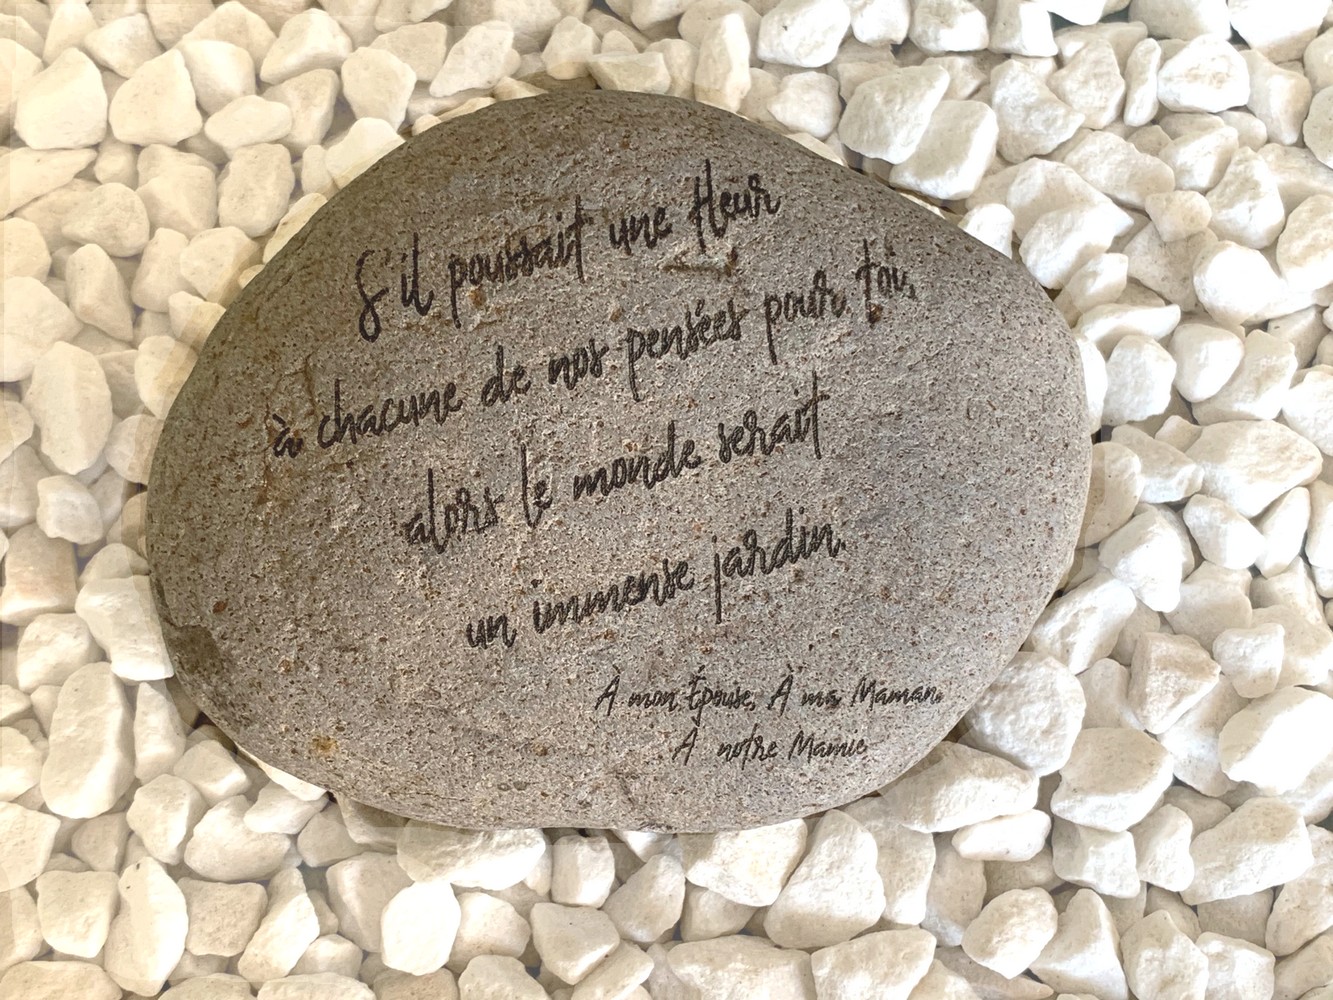 S'il poussait une fleur
à chacune de nos pensées pour toi,
alors le monde serait
un immense jardin.
À mon Épouse, À ma Maman,
À notre Mamie